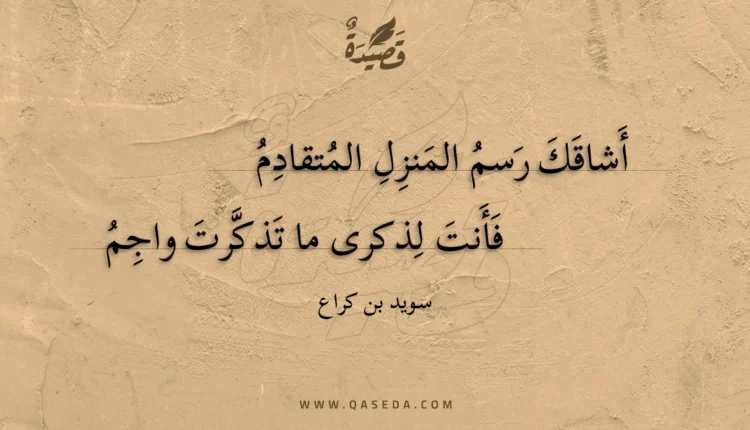 قَصِيدَةٌ
أَشاقَكَ رَسمُ المَنزِلِ المُتقادِمُ
فَأَنتَ لِذكرى ما تَذكَّرتَ واجِمُ
سويد بن كراع
WWW.QASEDA.COM